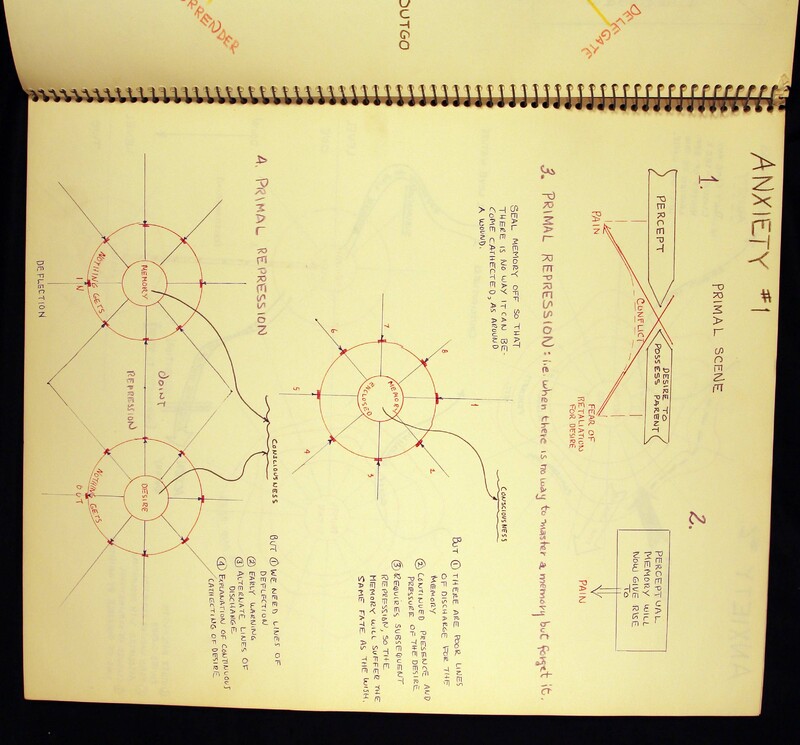 SURRENDER
OUTGO
DELEGATE
ANXIETY #1
1.
PRIMAL SCENE
PERCEPT
DESIRE TO
POSSESS PARENT
CONFLICT
PAIN
FEAR OF
RETALIATION
FOR DESIRE
2.
PERCEPTUAL
MEMORY WILL
NOW GIVE RISE
TO
PAIN
3. PRIMAL REPRESSION: i.e. when there is no way to master a memory but forget it.
SEAL MEMORY OFF SO THAT
THERE IS NO WAY IT CAN BE-
COME CATHECTED, AS AROUND
A WOUND.
MEMORY
ENCLOSED
1
2
3
4
5
6
7
8
CONSCIOUSNESS
BUT ① THERE ARE POOR LINES
OF DISCHARGE FOR THE
MEMORY
② CONTINUED PRESENCE AND
PRESSURE OF THE DESIRE
③ REQUIRES SUBSEQUENT
REPRESSION, SO THE
MEMORY WILL SUFFER THE
SAME FATE AS THE WISH.
4. PRIMAL REPRESSION
MEMORY
NOTHING GETS
IN
DEFLECTION
JOINT
REPRESSION
CONSCIOUSNESS
DESIRE
NOTHING GETS
OUT
BUT ① WE NEED LINES OF
DEFLECTION
② EARLY WARNING
③ ALTERNATE LINES OF
DISCHARGE.
④ EXPLANATION OF CONTINUOUS
CATHECTING OF DESIRE.